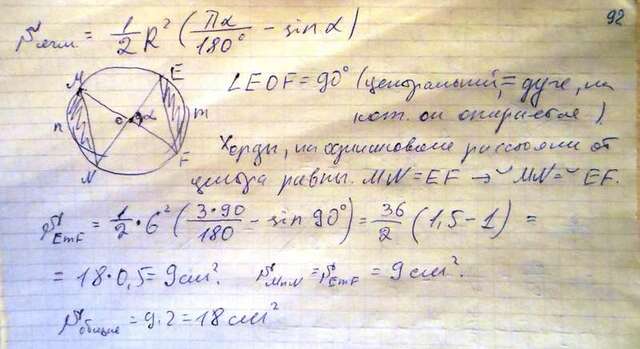 92
S сегм. = 1/2 R² (πα/180° - sin α)
M E n o α m N F
∠EOF = 90° (центральный, = дуге, на
кот. он опирается)
Хорды, на одинаковом расстоянии от
центра равны. MN = EF → ◡MN = ◡EF.
S EmF = 1/2 · 6² (3·90/180 - sin 90°) = 36/2 (1,5 - 1) =
= 18·0,5 = 9 см². S MnN = S EmF = 9 см².
S общие = 9·2 = 18 см²